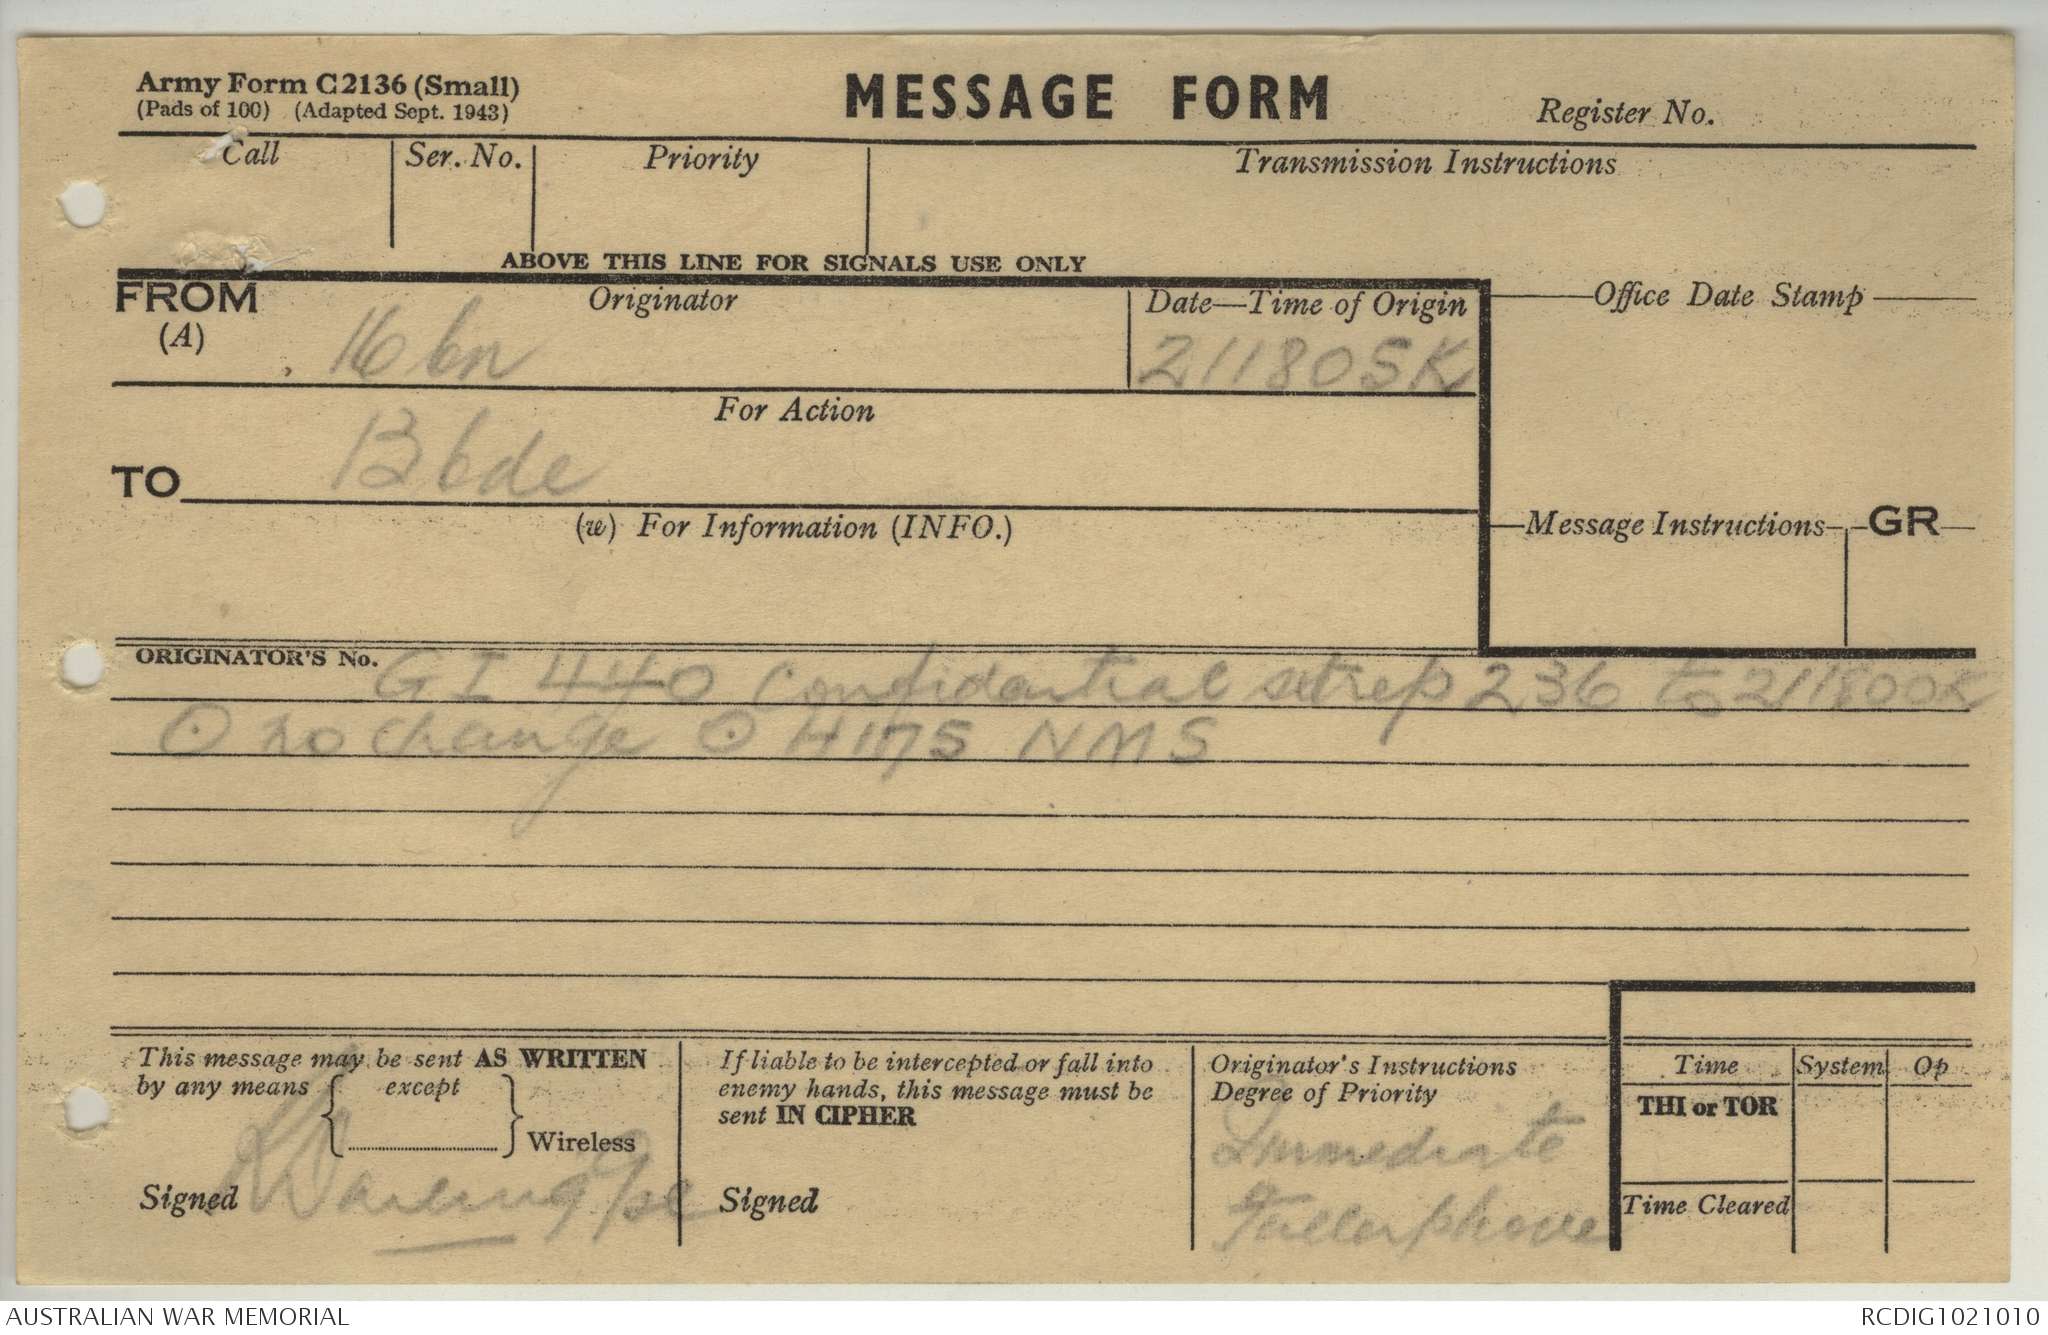 Army Form C2136 (Small)
(Pads of 100) (Adapted Sept. 1943)
MESSAGE FORM
Register No.
Call
Ser. No.
Priority
Transmission Instructions
ABOVE THIS LINE FOR SIGNALS USE ONLY
FROM
(A)
Originator
16 bn
Date—Time of Origin
211805K
Office Date Stamp
For Action
TO
13 bde
(w) For Information (INFO.)
Message Instructions
GR
ORIGINATOR'S No.
GI 440 confidential sitrep 236 to 211800K
⊙ no change ⊙ 4175 NMS
This message may be sent AS WRITTEN
by any means { except } Wireless
Signed
If liable to be intercepted or fall into
enemy hands, this message must be
sent IN CIPHER
Signed
Originator's Instructions
Degree of Priority
Immediate
Fullerphone
Time
System
Op
THI or TOR
Time Cleared
AUSTRALIAN WAR MEMORIAL
RCDIG1021010